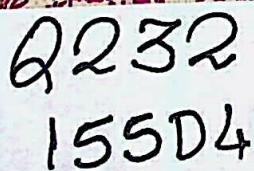 Q232
155D4